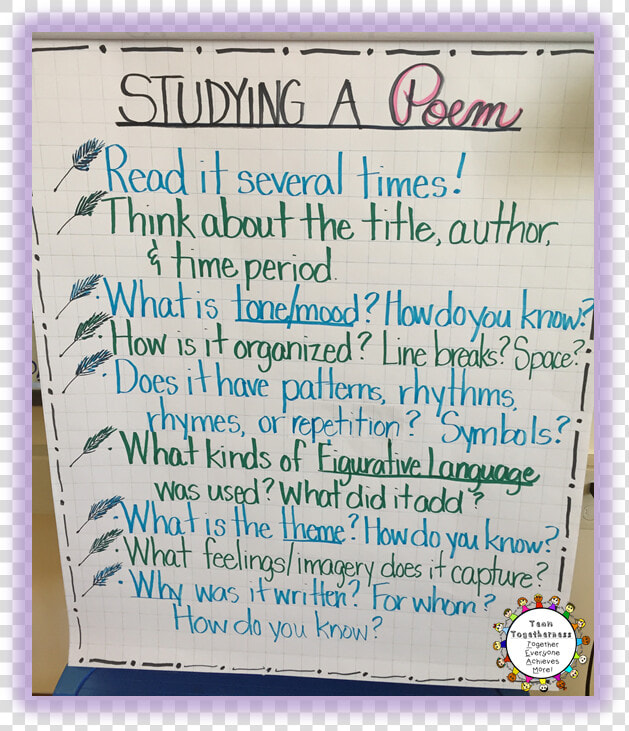 STUDYING A Poem
Read it several times!
Think about the title, author,
& time period.
What is tone/mood? How do you know?
How is it organized? Line breaks? Space?
Does it have patterns, rhythms,
rhymes, or repetition? Symbols?
What kinds of Figurative Language
was used? What did it add?
What is the theme? How do you know?
What feelings/imagery does it capture?
Why was it written? For whom?
How do you know?
Team
Togetherness
Together
Everyone
Achieves
More!